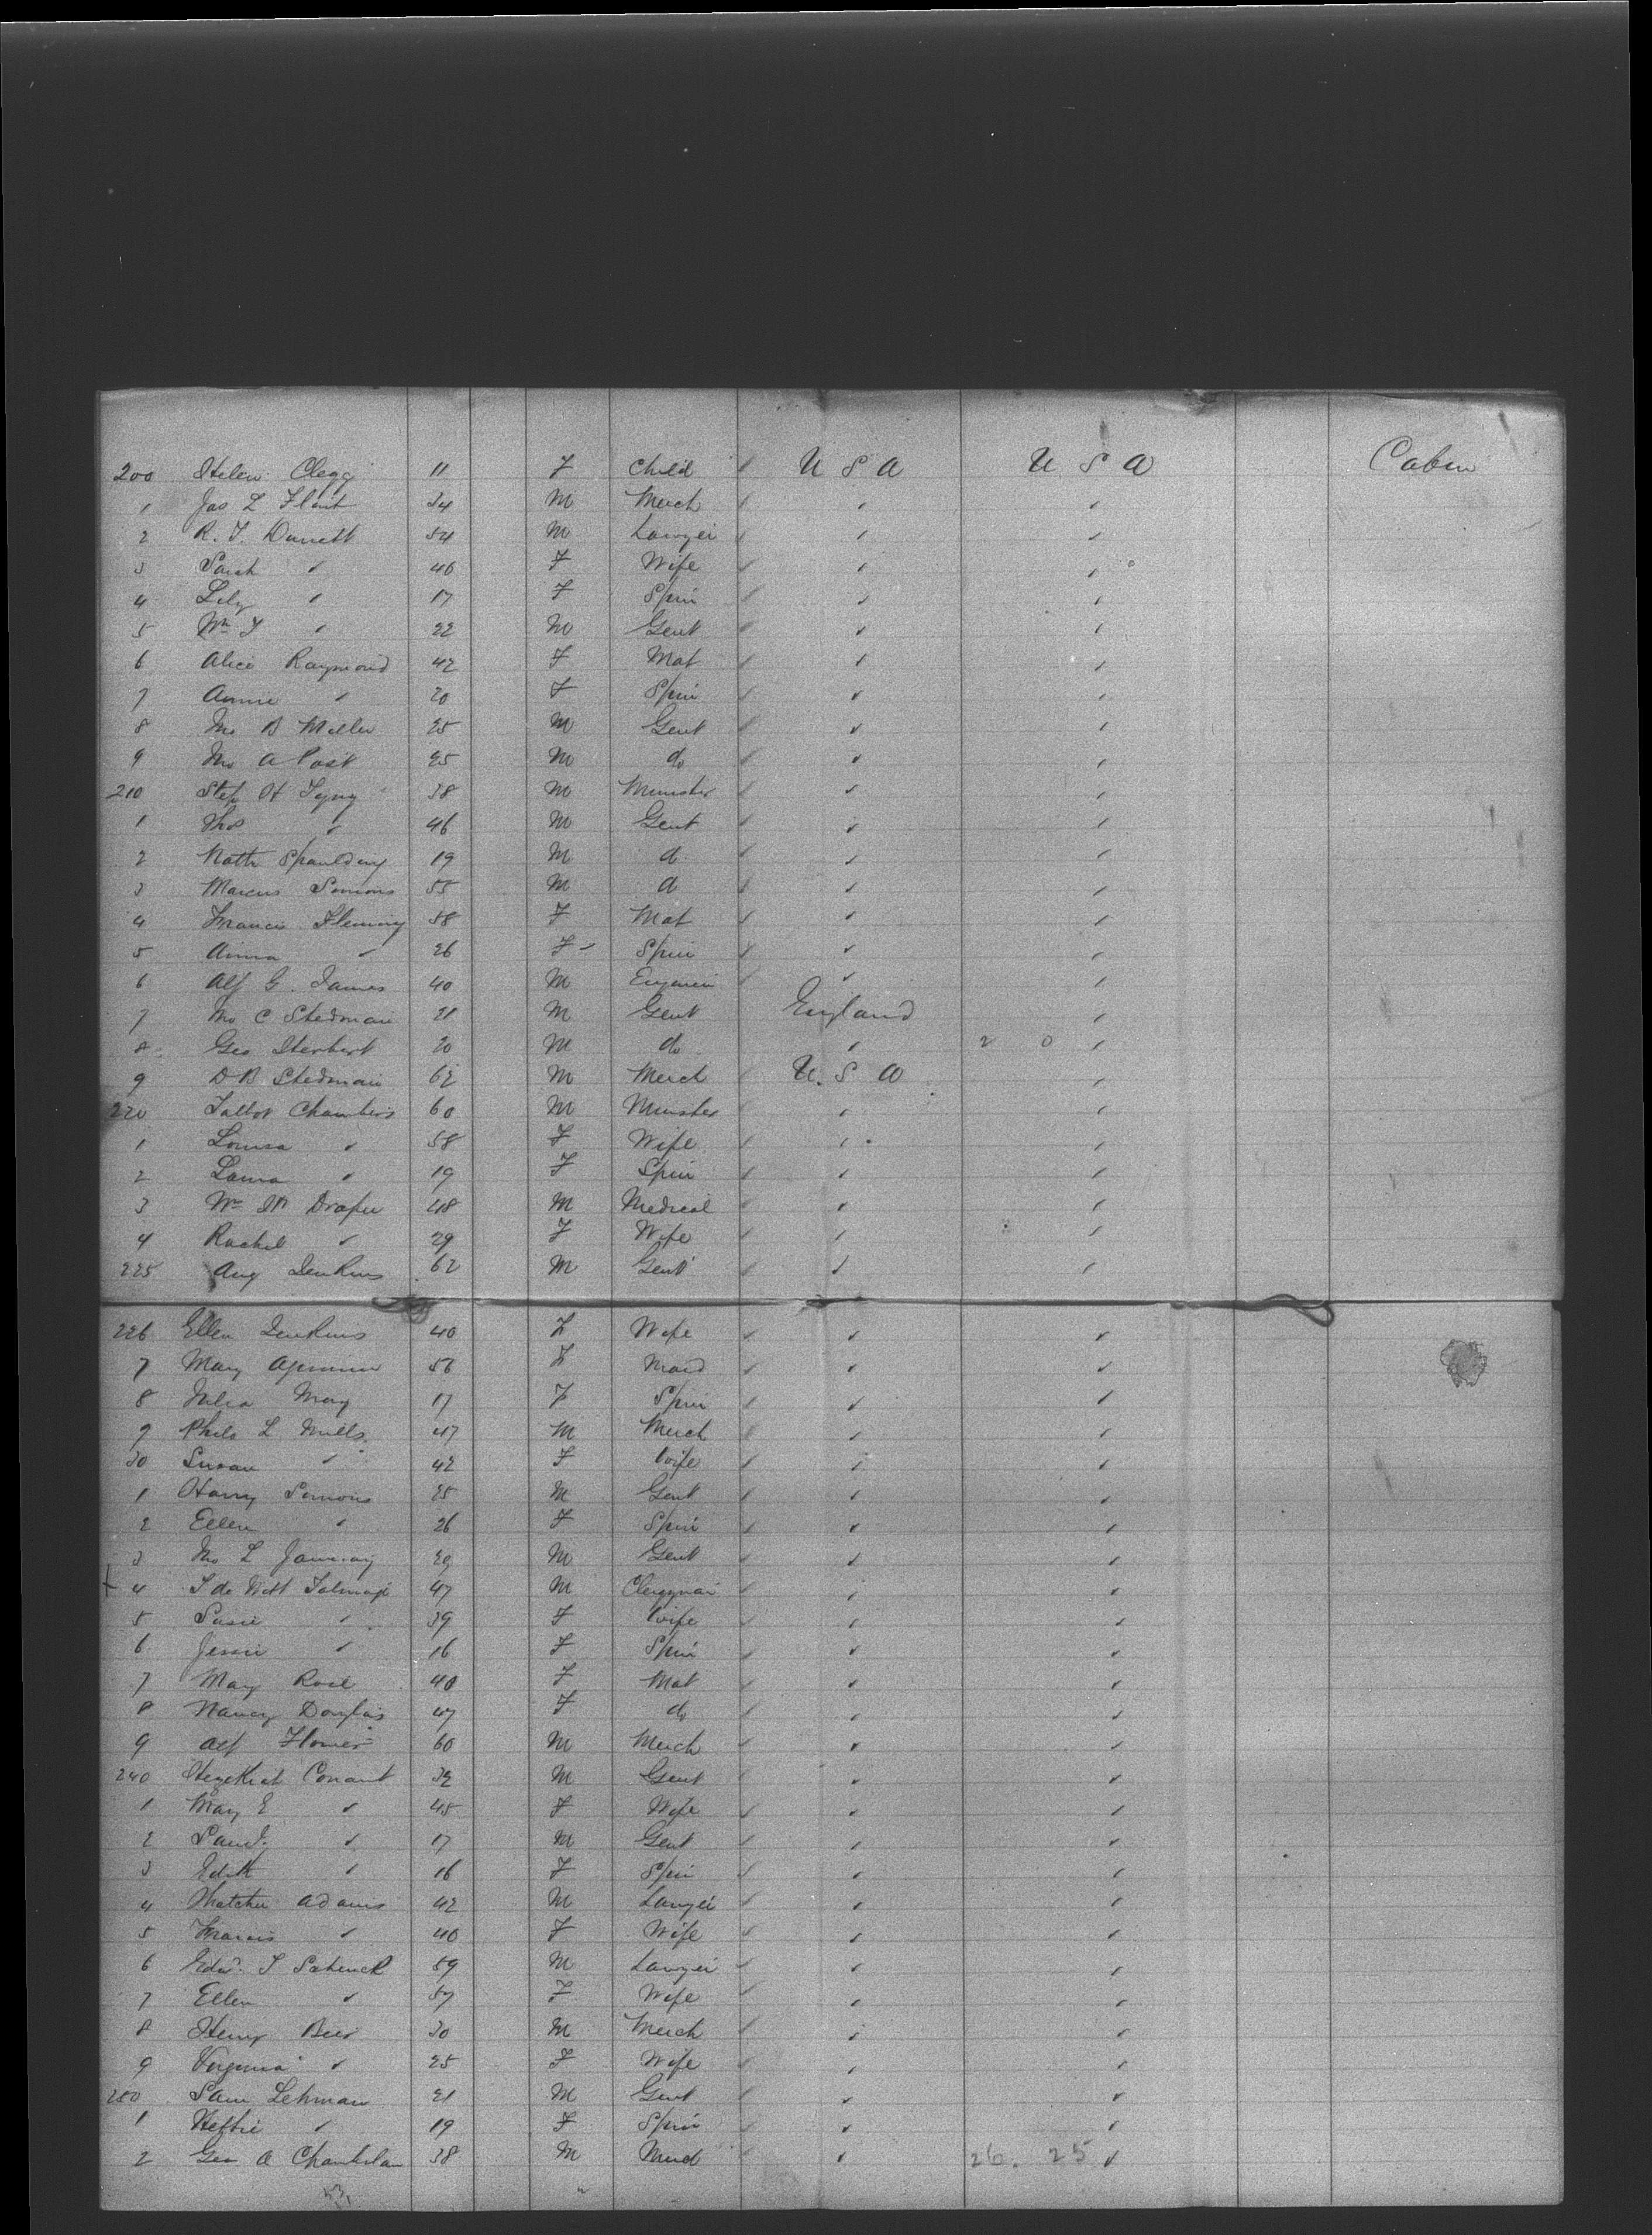 200 Helen Clegg 11 F Child ✓ U S A U S A Cabin
1 Jas L Flint 34 M Merch ✓ ✓ ✓
2 R. T. Durrett 54 M Lawyer ✓ ✓ ✓
3 Sarah ✓ 40 F Wife ✓ ✓ ✓
4 Lily ✓ 17 F Spin ✓ ✓ ✓
5 Wm T ✓ 22 M Gent ✓ ✓ ✓
6 Alice Raymond 42 F Mat ✓ ✓ ✓
7 Annie ✓ 20 F Spin ✓ ✓ ✓
8 Jno B Miller 25 M Gent ✓ ✓ ✓
9 Jno A Post 25 M do ✓ ✓ ✓
210 Step H Tyng 38 M Minister ✓ ✓ ✓
1 Thos ✓ 46 M Gent ✓ ✓ ✓
2 Nath Spaulding 19 M d ✓ ✓ ✓
3 Marcus Somons 55 M d ✓ ✓ ✓
4 Francis Fleming 58 F Mat ✓ ✓ ✓
5 Anna ✓ 26 F Spin ✓ ✓ ✓
6 Alf G. James 40 M Engineer ✓ ✓ ✓
7 Jno C Stedman 21 M Gent England ✓
8 Geo Herbert 20 M do ✓ 2 0 ✓
9 D B Stedman 62 M Merch ✓ U. S A ✓
220 Talbot Chambers 60 M Minister ✓ ✓ ✓
1 Louisa ✓ 58 F Wife ✓ ✓ ✓
2 Laura ✓ 19 F Spin ✓ ✓ ✓
3 Wm H Draper 48 M Medical ✓ ✓ ✓
4 Rachel ✓ 29 F Wife ✓ ✓ ✓
225 Aug Jenkins 62 M Gent ✓ ✓ ✓
226 Ellen Jenkins 40 F Wife ✓ ✓ ✓
7 Mary 56 F Maid ✓ ✓ ✓
8 Julia May 17 F Spin ✓ ✓ ✓
9 Philo L Mills 47 M Merch ✓ ✓ ✓
30 Susan ✓ 42 F Wife ✓ ✓ ✓
1 Harry Somons 25 M Gent ✓ ✓ ✓
2 Ellen ✓ 26 F Spin ✓ ✓ ✓
3 Jno L January 29 M Gent ✓ ✓ ✓
+ 4 T de Witt Talmage 47 M Clergyman ✓ ✓ ✓
5 Susie ✓ 39 F Wife ✓ ✓ ✓
6 Jessie ✓ 16 F Spin ✓ ✓ ✓
7 Mary Rose 40 F Mat ✓ ✓ ✓
8 Nancy Douglas 47 F do ✓ ✓
9 Alf Flower 60 M Merch ✓ ✓ ✓
240 Hezekiah Conant 32 M Gent ✓ ✓ ✓
1 Mary E ✓ 45 F Wife ✓ ✓ ✓
2 Saml. ✓ 17 M Gent ✓ ✓ ✓
3 Edith ✓ 16 F Spin ✓ ✓ ✓
4 Thatcher Adams 42 M Lawyer ✓ ✓ ✓
5 Francis ✓ 40 F Wife ✓ ✓ ✓
6 Edwd. T Schenck 59 M Lawyer ✓ ✓ ✓
7 Ellen ✓ 57 F Wife ✓ ✓ ✓
8 Henry Beer 30 M Merch ✓ ✓ ✓
9 Virginia ✓ 25 F Wife ✓ ✓ ✓
250 Sam Lehman 21 M Gent ✓ ✓ ✓
1 Hettie ✓ 19 F Spin ✓ ✓ ✓
2 Geo A Chamberlan 38 M ✓ ✓ 26. 25 ✓